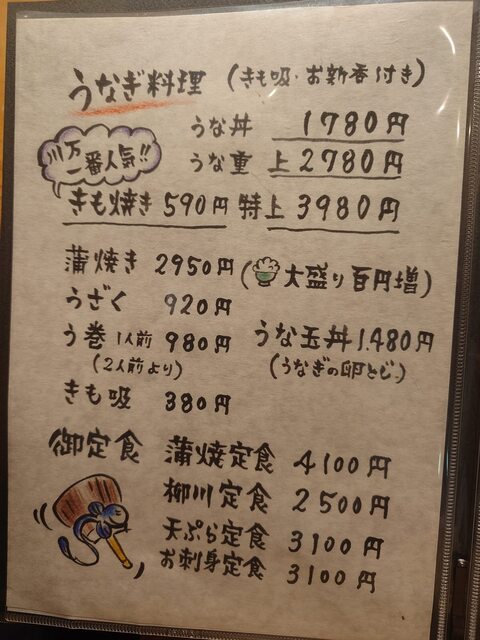 うなぎ料理 (きも吸・お新香付き)
うな丼 1780円
川万一番人気!!
うな重 上 2780円
きも焼き 590円 特上 3980円
蒲焼き 2950円 (大盛り百円増)
うざく 920円
う巻 1人前 980円 うな玉丼 1.480円
(2人前より) (うなぎの卵とじ)
きも吸 380円
御定食 蒲焼定食 4100円
柳川定食 2500円
天ぷら定食 3100円
お刺身定食 3100円